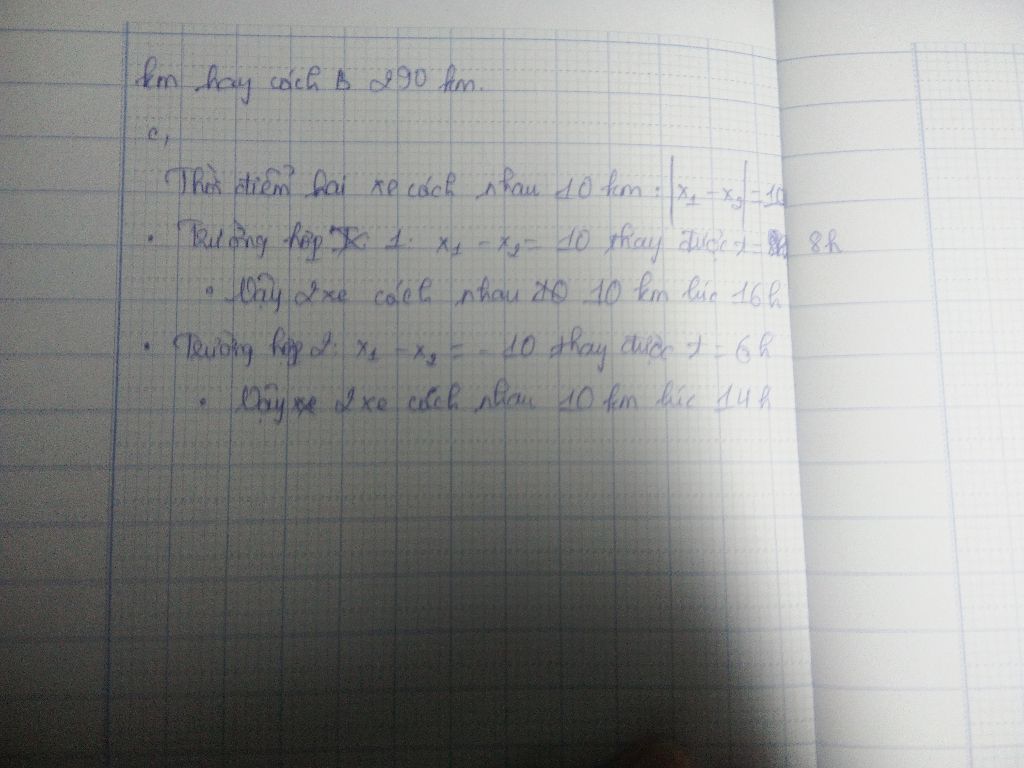 km hay cách B 290 km.
c,
Thời điểm hai xe cách nhau 10 km : |x₁ - x₂| = 10
• Trường hợp 1: x₁ - x₂ = 10 thay được t = 8h
• Vậy 2 xe cách nhau 10 km lúc 16h
• Trường hợp 2: x₁ - x₂ = - 10 thay được t = 6h
• Vậy 2 xe cách nhau 10 km lúc 14h